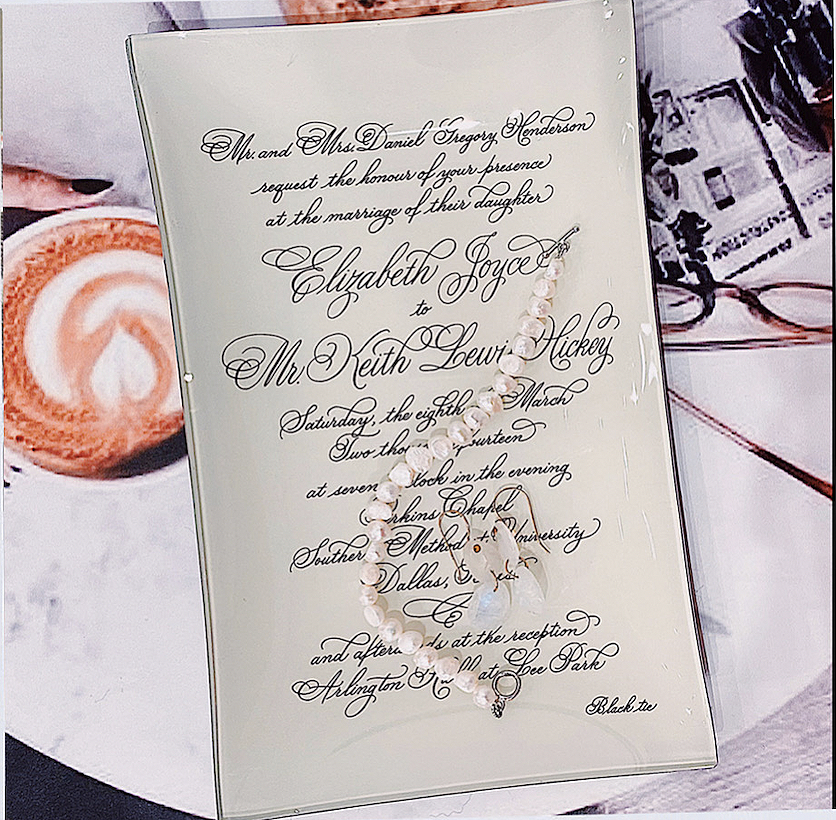 Mr. and Mrs. Daniel Gregory Henderson
request the honour of your presence
at the marriage of their daughter
Elizabeth Joyce
to
Mr. Keith Lewi Hickey
Saturday, the eighth March
Two tho ourteen
at seven lock in the evening
rkins Chapel
Souther Method University
Dallas,
and after ds at the reception
Arlington Hall at Lee Park
Black tie